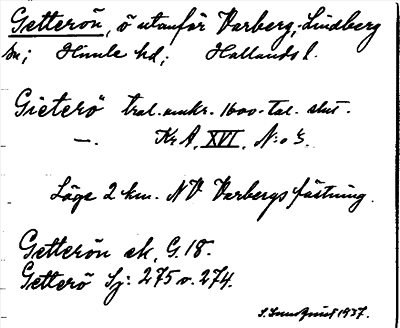 Getterön, ö utanför Varberg, Lindberg
sn; Himle hd; Hallands l.
Gieterö tral. omkr. 1600-tal. slut.
—. Kr. A. XVI. N:o 3.
Läge 2 km. NV Varbergs fästning.
Getterön ek. G. 18.
Getterö Sj: 275 o. 274.
1937.